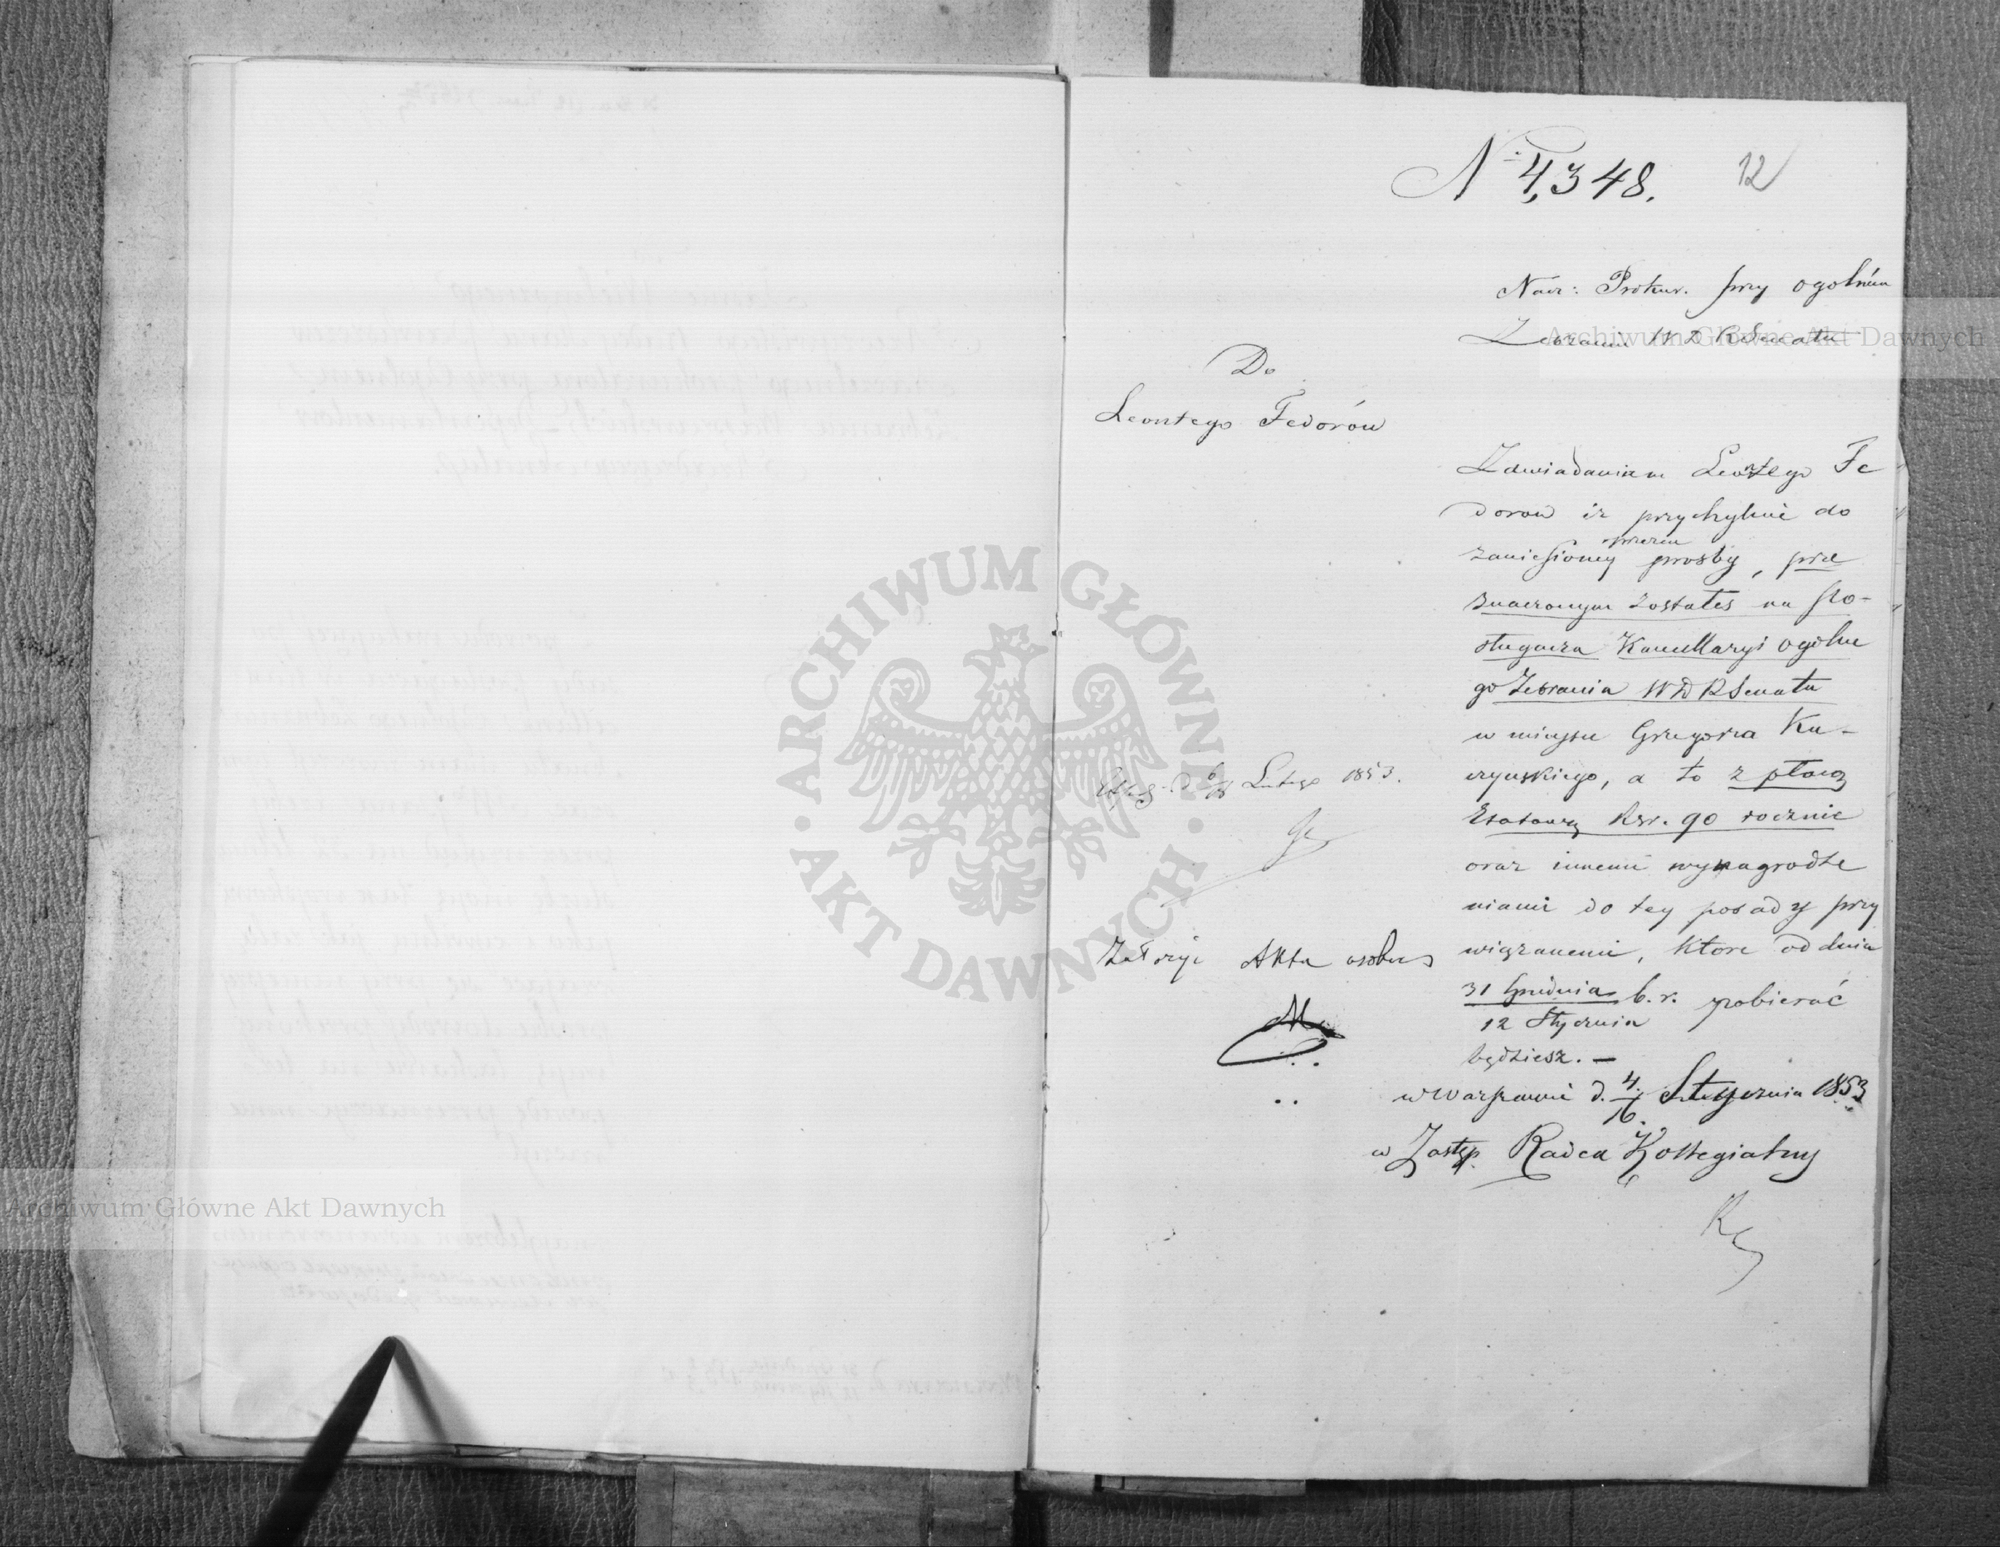 N 4,348.
12
Nacz: Prokur. przy ogolném
Zebraniu W D R Senatu
Do
Leontego Fedorów
Zawiadamiam Leontego Fe
dorow iż przychylnie do
zaniesioney przezeń prosby, prze
znaczonym zostałeś na po-
sługacza Kancellaryi ogolne
go Zebrania W D R Senatu
w mieysce Grzegorza Ku-
czyńskiego, a to z płacą
Etatową Rsr. 90 rocznie
oraz innemi wynagrodze
niami do tey posady przy
wiązanemi, które od dnia
31 Grudnia
12 Stycznia
b. r. pobierać
będziesz. —
w Warszawie d. 4/16 Stycznia 1853
w Zastęp. Radca Kollegialny
d 6/18 Lutego 1853.
Załozyć Akta osobne
ARCHIWUM GŁÓWNE · AKT DAWNYCH ·
Archiwum Główne Akt Dawnych
Archiwum Główne Akt Dawnych